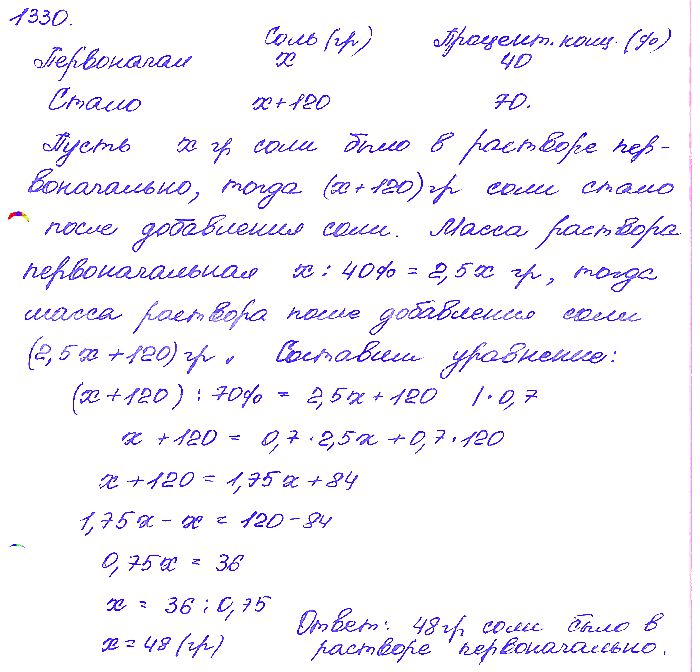 1330.
Соль (гр) Процент. конц. (%)
Первоначал x 40
Стало x+120 70.
Пусть x гр соли было в растворе пер-
воначально, тогда (x+120) гр соли стало
после добавления соли. Масса раствора
первоначальная x : 40% = 2,5x гр, тогда
масса раствора после добавления соли
(2,5x+120) гр. Составим уравнение:
(x+120) : 70% = 2,5x+120 |·0,7
x +120 = 0,7·2,5x + 0,7·120
x+120 = 1,75x+84
1,75x - x = 120-84
0,75x = 36
x = 36 : 0,75
x = 48 (гр)
Ответ: 48 гр соли было в
растворе первоначально.